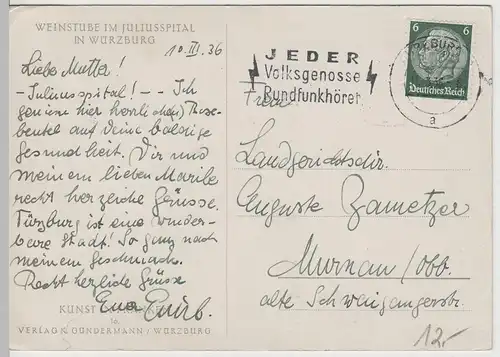 WEINSTUBE IM JULIUSSPITAL
IN WÜRZBURG
10.III.36
Liebe Mutter!
-Juliusspital!-- Ich
geniesse hier herrliche(n)
beutel auf Deine baldige
Gesundheit. Dir und
meinem lieben
recht herzliche Grüsse.
Würzburg ist eine wunder-
bare Stadt! So ganz nach
meinem Geschmack.
Recht herzliche Grüsse
KUNST
VERLAG K. GUNDERMANN / WÜRZBURG
JEDER
Volksgenosse
Rundfunkhörer
a
6
6
Deutsches Reich
Frau
Landgerichtsdir.
Auguste Zametzer
Murnau/Obb.
alte Schwaigangerstr.
12.-